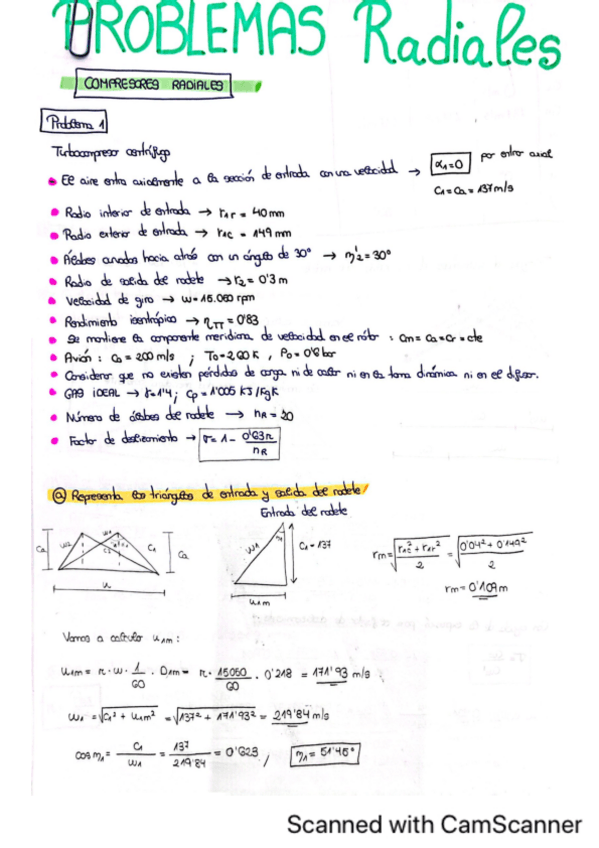 PROBLEMAS Radiales
COMPRESORES RADIALES
Problema 1
Turbocompresor centrífugo
• El aire entra axialmente a la sección de entrada con una velocidad → α1=0 por entrar axial
C1=Ca=137m/s
• Radio interior de entrada → r1r = 40mm
• Radio exterior de entrada → r1c = 149mm
• Álabes curvados hacia atrás con un ángulo de 30° → η'2=30°
• Radio de salida del rodete → r2=0'3m
• Velocidad de giro → w=15.050 rpm
• Rendimiento isentrópico → ηTT=0'83
• Se mantiene la componente meridiana de velocidad en el rotor : Cm=Ca=Cr=cte
• Avión : C0=200m/s ; T0=280K , P0=0'8bar
• Considerar que no existen pérdidas de carga ni de calor ni en la toma dinámica ni en el difusor.
• GAS IDEAL → γ=1'4 ; Cp=1'005 KJ/KgK
• Número de álabes del rodete → nR=20
• Factor de deslizamiento → σ=1- 0'63π / nR
ⓐ Representa los triángulos de entrada y salida del rodete/
Entrada del rodete
Ca w2 C2 C1 Ca
u
w1 C1=137
u1m
rm=√(r1c²+r1r²/2) = √(0'04²+0'149²/2)
rm=0'109m
Vamos a calcular u1m :
u1m = π·w·1/60·D1m = π·15050/60·0'218 = 171'93 m/s
w1 = √C1²+u1m² = √137²+171'93² = 219'84m/s
cos η1 = C1/w1 = 137/219'84 = 0'623 , η1=51'45°
Scanned with CamScanner